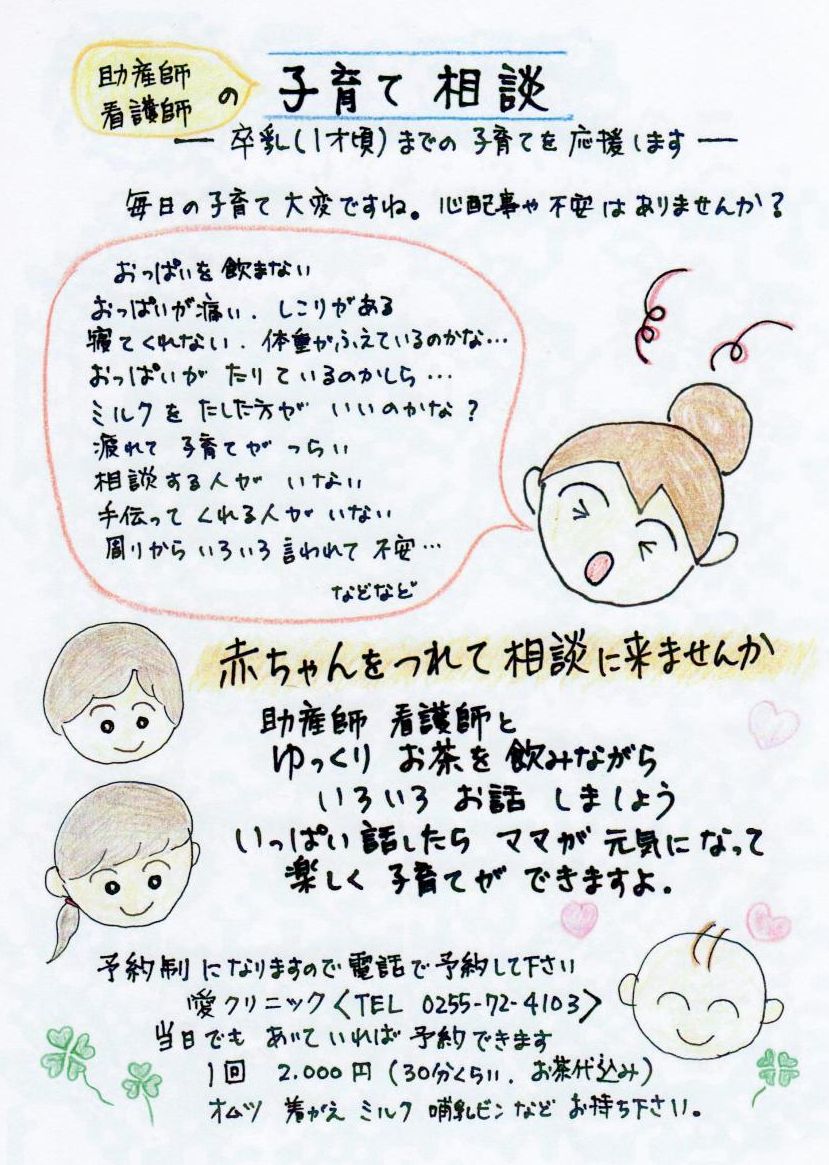 助産師
看護師
の 子育て 相談
― 卒乳(1才頃)までの 子育てを 応援します ―
毎日の子育て 大変ですね。心配事や不安は ありませんか?
おっぱいを 飲まない
おっぱいが 痛い. しこりがある
寝てくれない. 体重がふえているのかな…
おっぱいが たりているのかしら …
ミルクを たした方が いいのかな?
疲れて 子育てが つらい
相談する人が いない
手伝って くれる人が いない
周りから いろいろ 言われて 不安…
などなど
赤ちゃんをつれて 相談に来ませんか
助産師 看護師と
ゆっくり お茶を 飲みながら
いろいろ お話 しましょう
いっぱい 話したら ママが 元気になって
楽しく 子育てが できますよ。
予約制になりますので 電話で 予約して下さい
愛クリニック〈TEL 0255-72-4103〉
当日でも あいていれば 予約できます
1回 2.000円 (30分くらい. お茶代込み)
オムツ 着がえ ミルク 哺乳ビン など お持ち下さい。